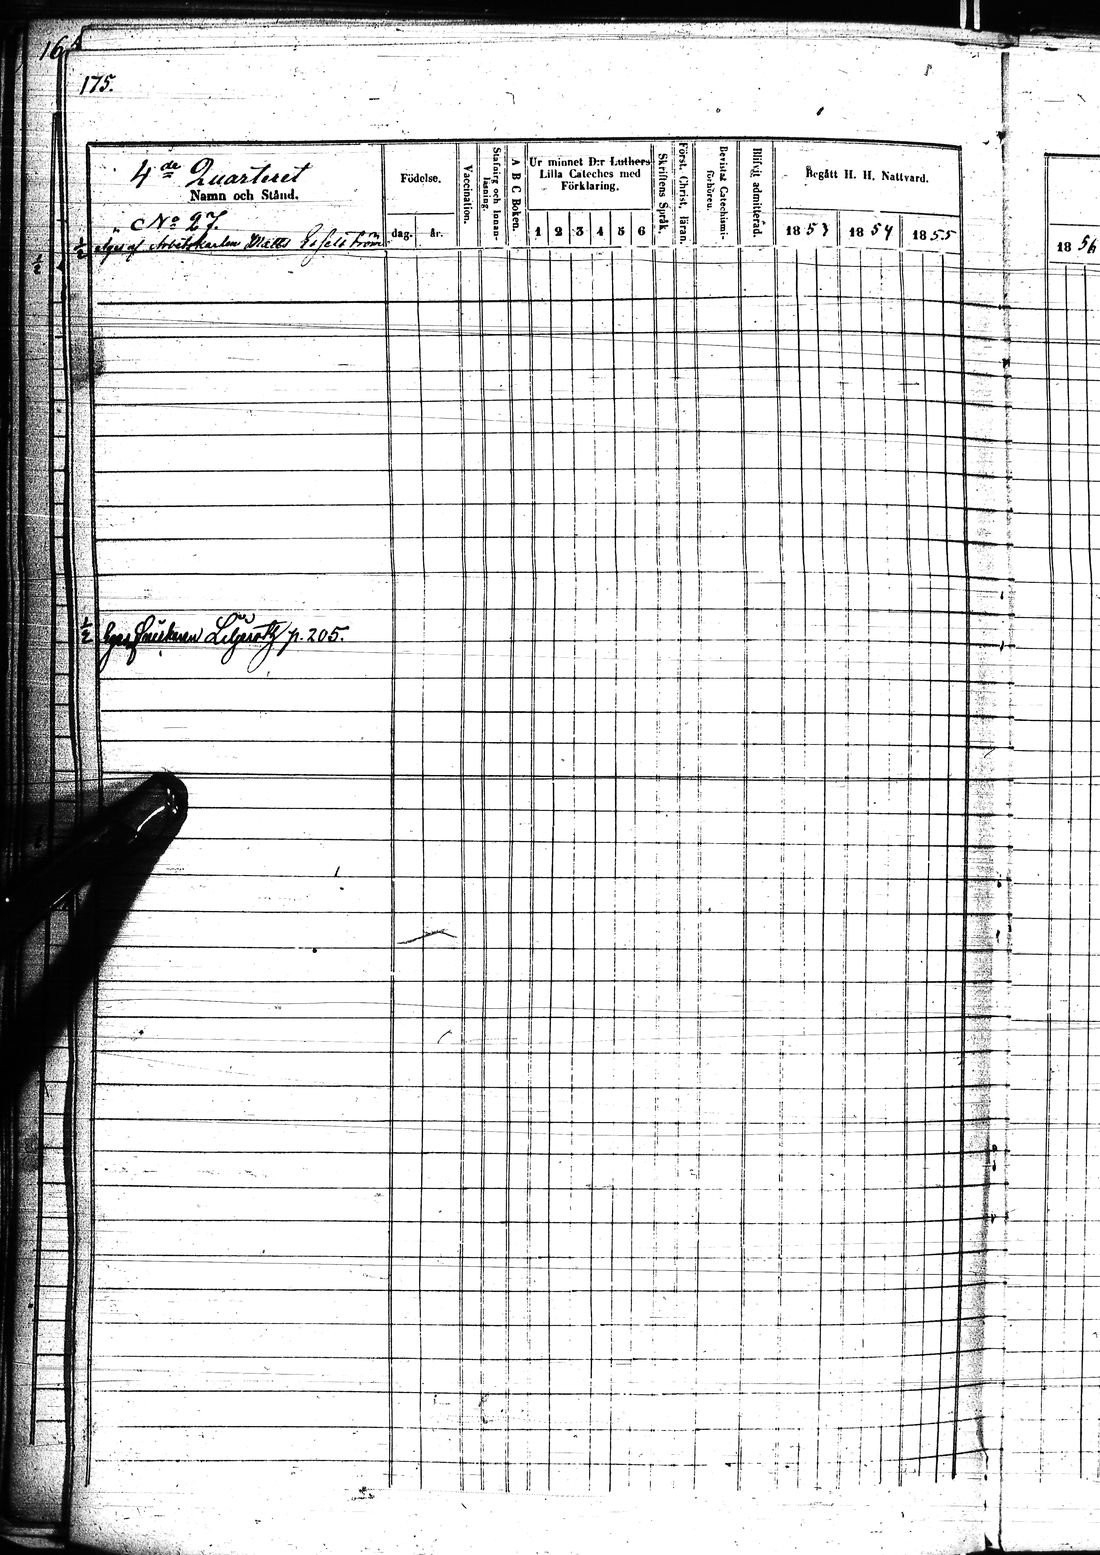 175.
4de Quarteret
Namn och Stånd.
Födelse.
dag. år.
Vaccination.
Stafning och Innanläsning.
A B C Boken.
Ur minnet D:r Luthers
Lilla Cateches med
Förklaring.
1 2 3 4 5 6
Skriftens Språk.
Först. Christ. läran.
Bevistat Catechismiförhören.
Blifvit admitterad.
Begått H. H. Nattvard.
1853 1854 1855
1856
No 27.
1/2 af Arbetskarlen Matts
1/2 p. 205.